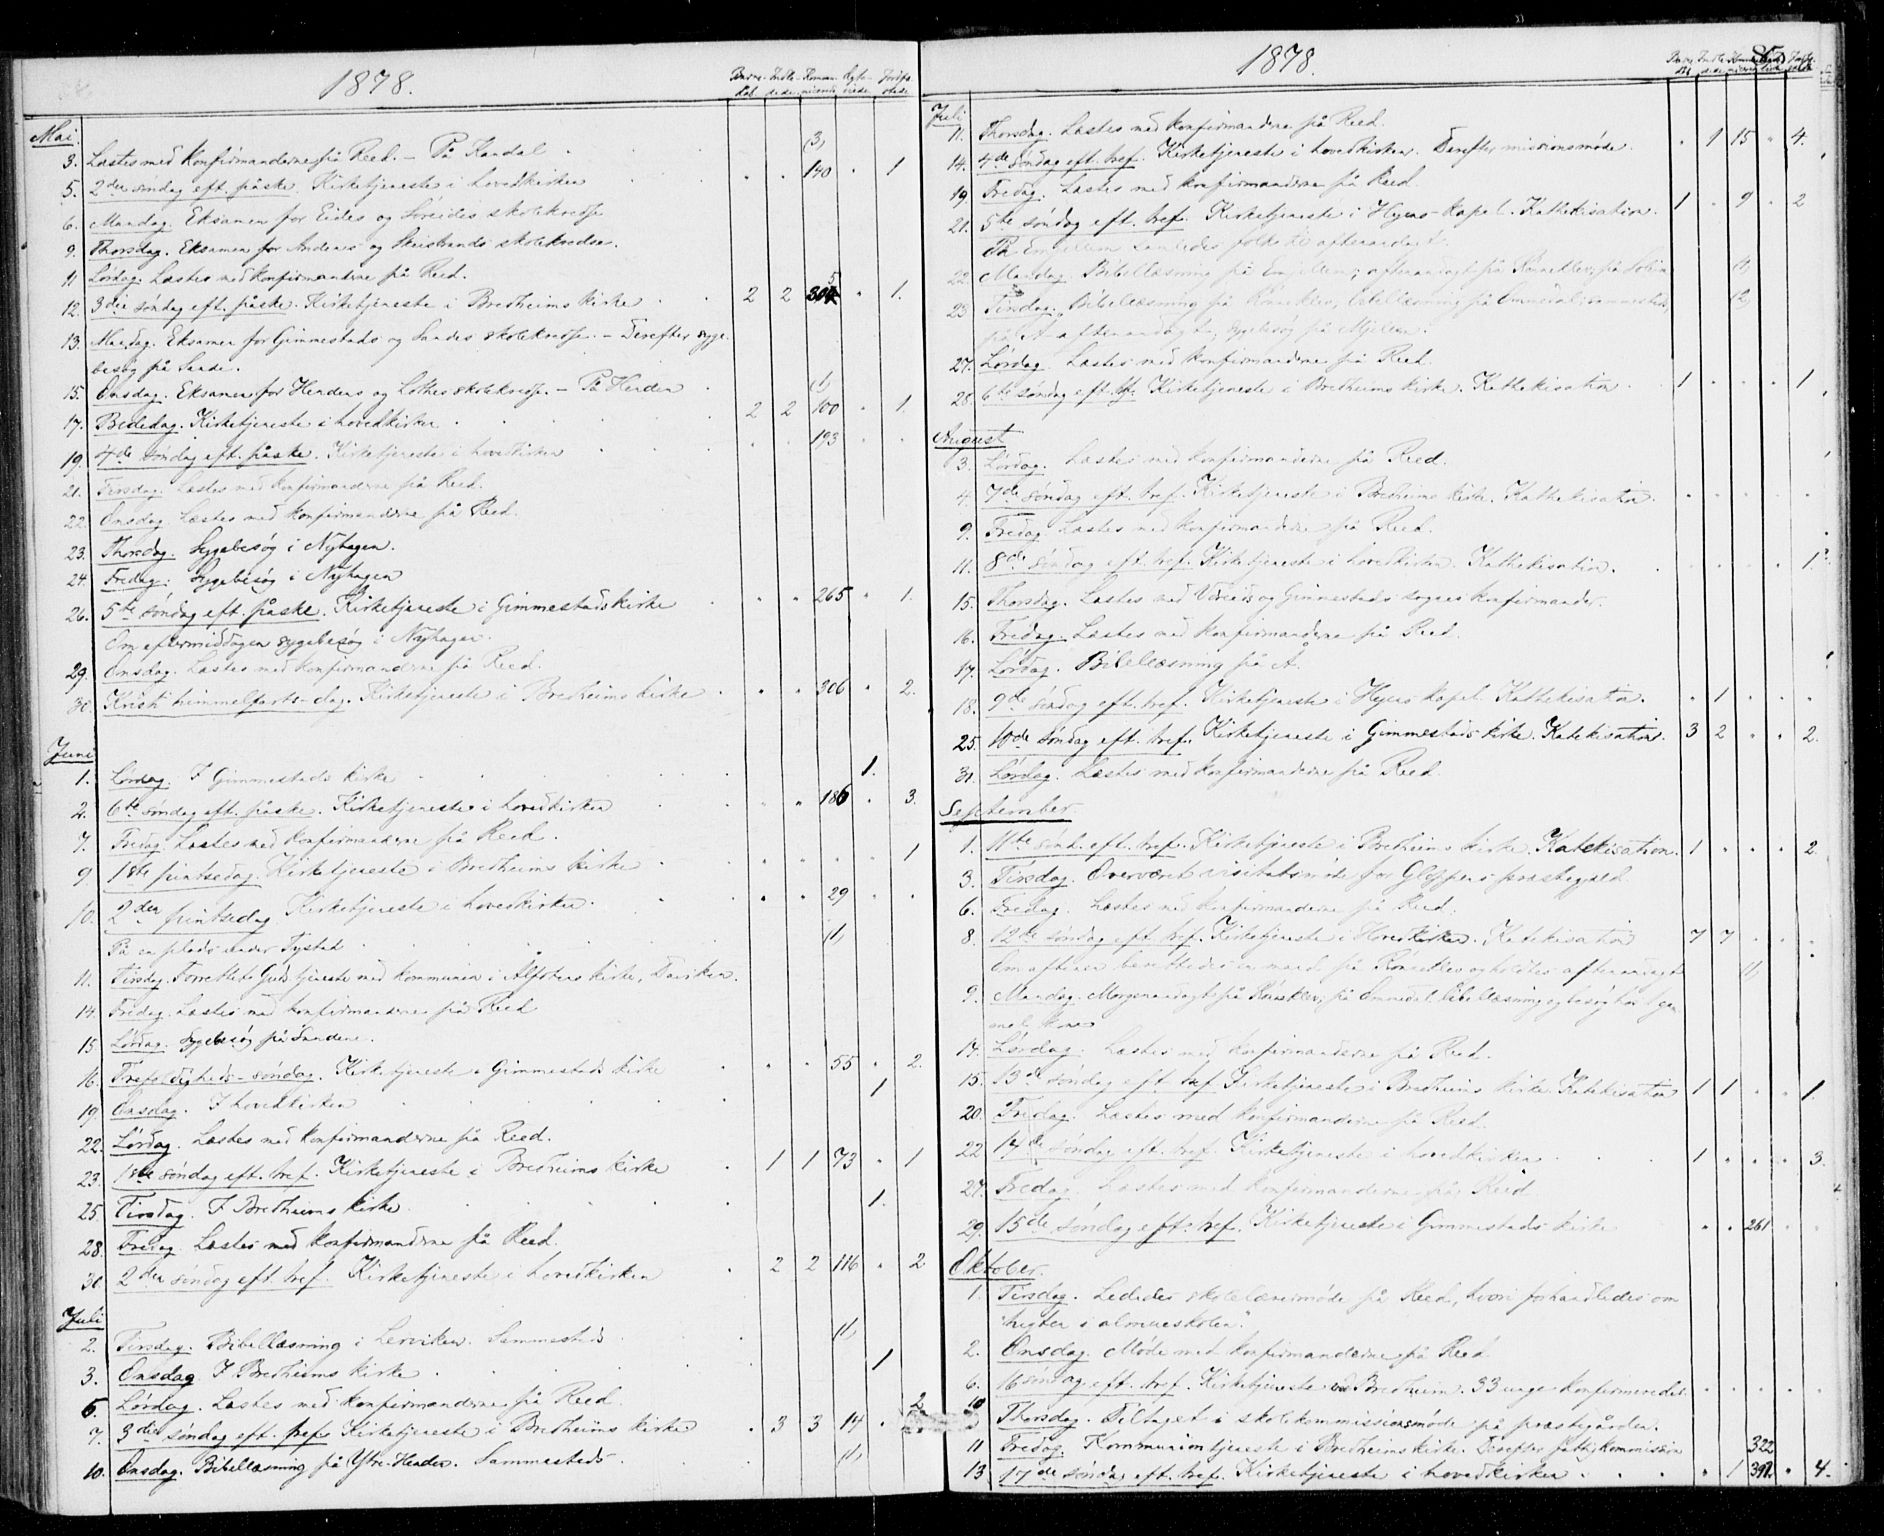 1878.
Mai.
3. Læstes med konfirmanderne på Reed. – På Kandal (3)
5. 2den søndag eft. påske. Kirketjeneste i hovedkirken 140 1
6. Mandag. Eksamen for Eides og Søreides skolekredse
9. Thorsdag. Eksamen for Andenes og Skeistrands skolekredse.
11 Lørdag. Læstes med konfirmanderne på Reed.
12. 3die søndag eft. påske. Kirketjeneste i Bredheims kirke 2 2 1.
13. Mandag. Eksamen for Gimmestads og Sandes skolekredse. – Derefter syge-
besøg på Sande.
15. Onsdag. Eksamen for Hendens og Lothes skolekredse. – På Henden (1)
17. Bededag. Kirketjeneste i hovedkirken 2 2 100 1.
19. 4de søndag eft. påske. Kirketjeneste i hovedkirken 193
21. Tirsdag. Læstes med konfirmanderne på Reed.
22. Onsdag. Læstes med konfirmanderne på Reed.
23. Thorsdag. Sygebesøg i Nyhagen.
24. Fredag. Sygebesøg i Nyhagen
26. 5te søndag eft. påske. Kirketjeneste i Gimmestads kirke 265 1.
Om eftermiddagen sygebesøg i Nyhagen.
29. Onsdag. Læstes med konfirmanderne på Reed.
30. Kristi himmelfarts-dag. Kirketjeneste i Bredheims kirke 306 2.
Juni
1. Lørdag. I Gimmestads kirke 1.
2. 6te søndag eft. påske. Kirketjeneste i hovedkirken 186 3.
7. Fredag. Læstes med konfirmanderne på Reed.
9. 1ste pintsedag. Kirketjeneste i Bredheims kirke 1
10. 2den pintsedag. Kirketjeneste i hovedkirken. 29
På en plads under Tystad (1)
11. Tirsdag. Forrettet Gudstjeneste med kommunion i Alfotens kirke, Daviken.
14. Fredag. Læstes med konfirmanderne på Reed
15. Lørdag. Sygebesøg på Sandene.
16. Trefoldigheds-søndag. Kirketjeneste i Gimmestads kirke 55 2.
19. Onsdag. I hovedkirken 1
22. Lørdag. Læstes med konfirmanderne på Reed.
23. 1ste søndag eft. tref. Kirketjeneste i Bredheims kirke 1 1 73 1
25. Tirsdag. I Bredheims kirke 1.
28. Fredag. Læstes med konfirmanderne på Reed.
30. 2den søndag eft. tref. Kirketjeneste i hovedkirken 2 2 116 2
Juli
2. Tirsdag. Bibellæsning i Lerviken. Sammesteds (1)
3. Onsdag. I Bredheims kirke 1
6. Lørdag. Læstes med konfirmanderne på Reed
7. 3die søndag eft. tref. Kirketjeneste i Bredheims kirke 3 3 14 2
10. Onsdag. Bibellæsning på Ytre-Henden. Sammesteds (1)
1878.
Juli
11. Thorsdag. Læstes med konfirmanderne på Reed.
14. 4de søndag eft. tref. Kirketjeneste i hovedkirken. Derefter missionsmøde. 1 15 4.
19 Fredag. Læstes med konfirmanderne på Reed.
21. 5te søndag eft. tref. Kirketjeneste i Hyens-kapel. Kathekisation. 1 9 2
På Emhellem samledes folk til aftenandagt.
22. Mandag. Bibellæsning på Emhellem; aftenandagt på Rønneklev; på Solem (1)
23. Tirsdag. Bibellæsning på Rønneklev, bibellæsning på Ommedal; sammesteds, (2)
på Å aftenandagt; sygebesøg på Mjellem.
27. Lørdag. Læstes med konfirmanderne på Reed
28. 6te søndag eft. tref. Kirketjeneste i Bredheims kirke. Kathekisation. 1 1
August
3. Lørdag. Læstes med konfirmanderne på Reed.
4. 7de søndag eft. tref. Kirketjeneste i Bredheims kirke. Kathekisation.
9. Fredag Læstes med konfirmanderne på Reed.
11. 8de søndag eft. tref. Kirketjeneste i hovedkirken. Kathekisation. 1.
15. Thorsdag. Læstes med Vereids og Gimmestads sognes konfirmander.
16. Fredag. Læstes med konfirmanderne på Reed.
17. Lørdag. Bibellæsning på Å.
18. 9de søndag eft. tref. Kirketjeneste i Hyens kapel. Kathekisation. 1
25. 10de søndag eft. tref. Kirketjeneste i Gimmestads kirke. Katekisation. 3 2 2.
31. Lørdag. Læstes med konfirmanderne på Reed.
September
1. 11te sønd. eft. tref. Kirketjeneste i Bredheims kirke. Katekisation. 1 2.
3. Tirsdag. Overværet visitatsmøde for Gloppens præstegjæld
6. Fredag. Læstes med konfirmanderne på Reed.
8. 12te søndag eft. tref. Kirketjeneste i Hovedkirken. Katekisation 7 7
Om aftenen berettedes en mand på Rønneklev og holdtes aftenandagt (1)
9. Mandag. Morgenandagt på Rønneklev; på Ommedal bibellæsning og besøg hos 1 gam-
mel kone
14. Lørdag. Læstes med konfirmanderne på Reed.
15. 13de søndag eft. tref. Kirketjeneste i Bredheims kirke. Katekisation 1 1 1
20. Fredag. Læstes med konfirmanderne på Reed.
22 14de søndag eft. tref. Kirketjeneste i hovedkirken 1 3.
27. Fredag. Læstes med konfirmanderne på Reed
29. 15de søndag eft. tref. Kirketjeneste i Gimmestads kirke 261
Oktober.
1. Tirsdag. Lededes skolelærermøde på Reed, hvori forhandledes om
"tugten i almueskolen".
2. Onsdag. Møde med konfirmanderne på Reed
6. 16 søndag eft. tref. Kirketjeneste ved Bredheim. 33 unge konfirmeredes.
10 Thorsdag. Deltaget i skolekommissionsmøde på præstegården.
11 Fredag. Kommuniontjeneste i Bredheims kirke. Derefter fattigkommission 322
13 17de søndag eft. tref. Kirketjeneste i hovedkirken 1 391. 4.